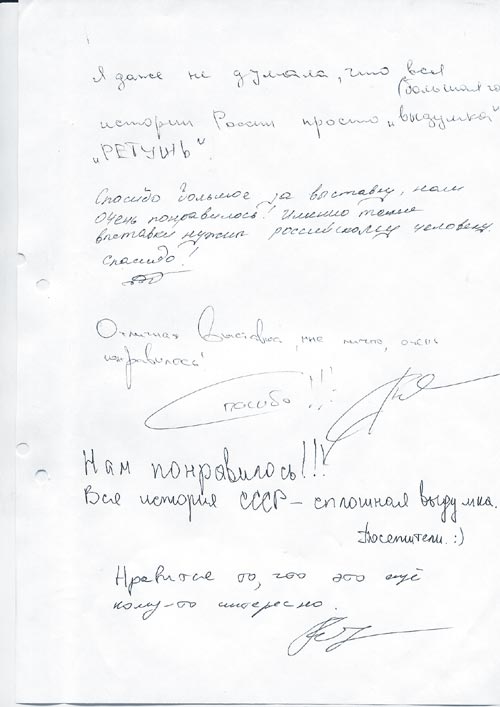 Я даже не думала, что вся
(большая
история России просто „выдумка"
„РЕТУШЬ".
Спасибо большое за выставку, нам
очень понравилось! Именно такие
выставки нужны российскому человеку.
Спасибо!
Отличная Выставка, мне лично, очень
понравилось!
Спасибо!!!
Нам понравилось!!!
Вся история СССР – сплошная выдумка.
Посетители :)
Нравится то, что это ещё
кому-то интересно.